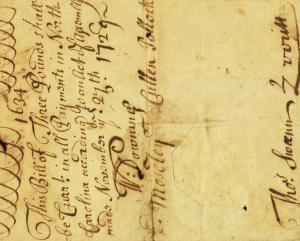 1234
This Bill of Three Pounds shall
be Curr.t in all Payments in North
Carolina according to an Act of Assembly
made November ye 27th 1729
W: Downing
E: Moseley Cullen Pollock
Tho.s Swann